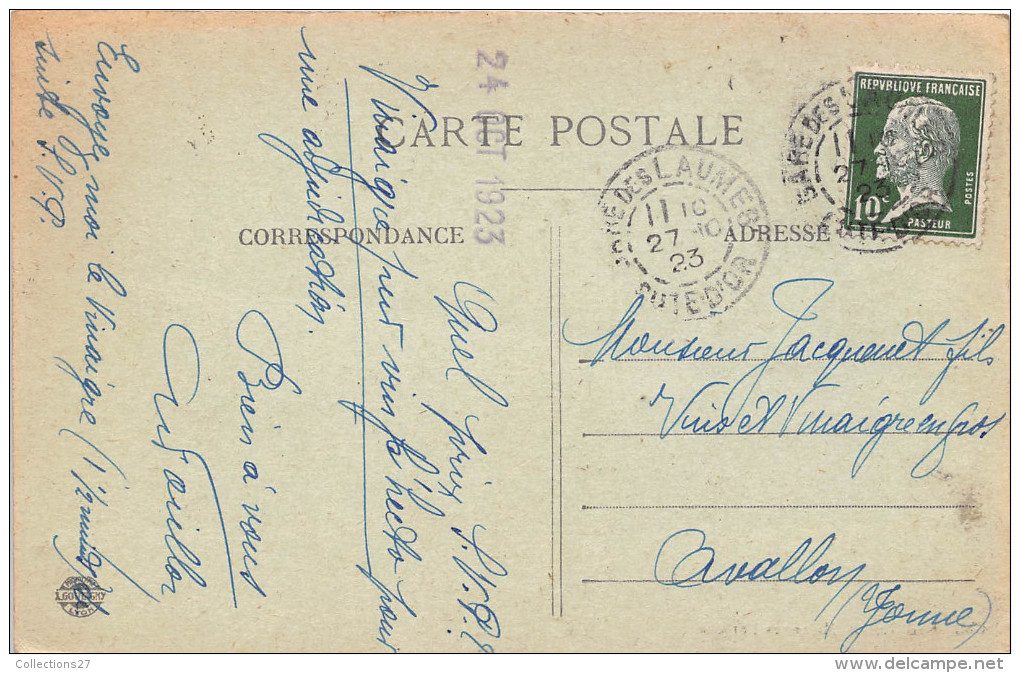 CARTE POSTALE
CORRESPONDANCE
ADRESSE
24 OCT 1923
Quel prix S.V.P. l'
Vinaigre pur vin l'hecto pour
une adjudication.
Bien à vous
Envoyez-moi le Vinaigre (1/2 muid)
suite S.V.P.
REPUBLIQUE FRANÇAISE
10c
POSTES
PASTEUR
GARE DES LAUMES
11 10
27 -10
23
COTE D'OR
GARE DES LAUMES
11 10
27 -10
23
COTE D'OR
Monsieur Jacquenet fils
Vins et Vinaigre en gros
Avallon
(Yonne)
LYON
Collections27
http://www.delcampe.net